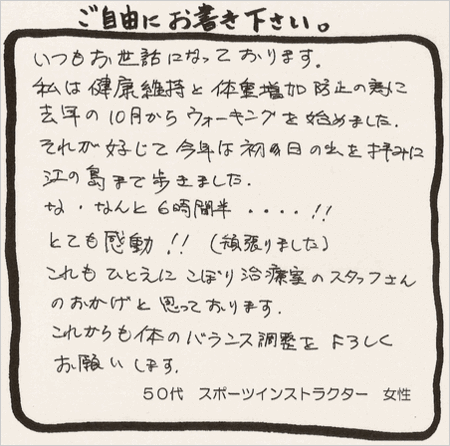 ご自由にお書き下さい。
いつもお世話になっております.
私は健康維持と体重増加防止の為に
去年の10月からウォーキングを始めました.
それが好じて今年は初日の出を拝みに
江の島まで歩きました.
な・なんと6時間半・・・・!!
とても感動!!(頑張りました)
これもひとえにこぼり治療室のスタッフさん
のおかげと思っております.
これからも体のバランス調整をよろしく
お願いします.
50代 スポーツインストラクター 女性